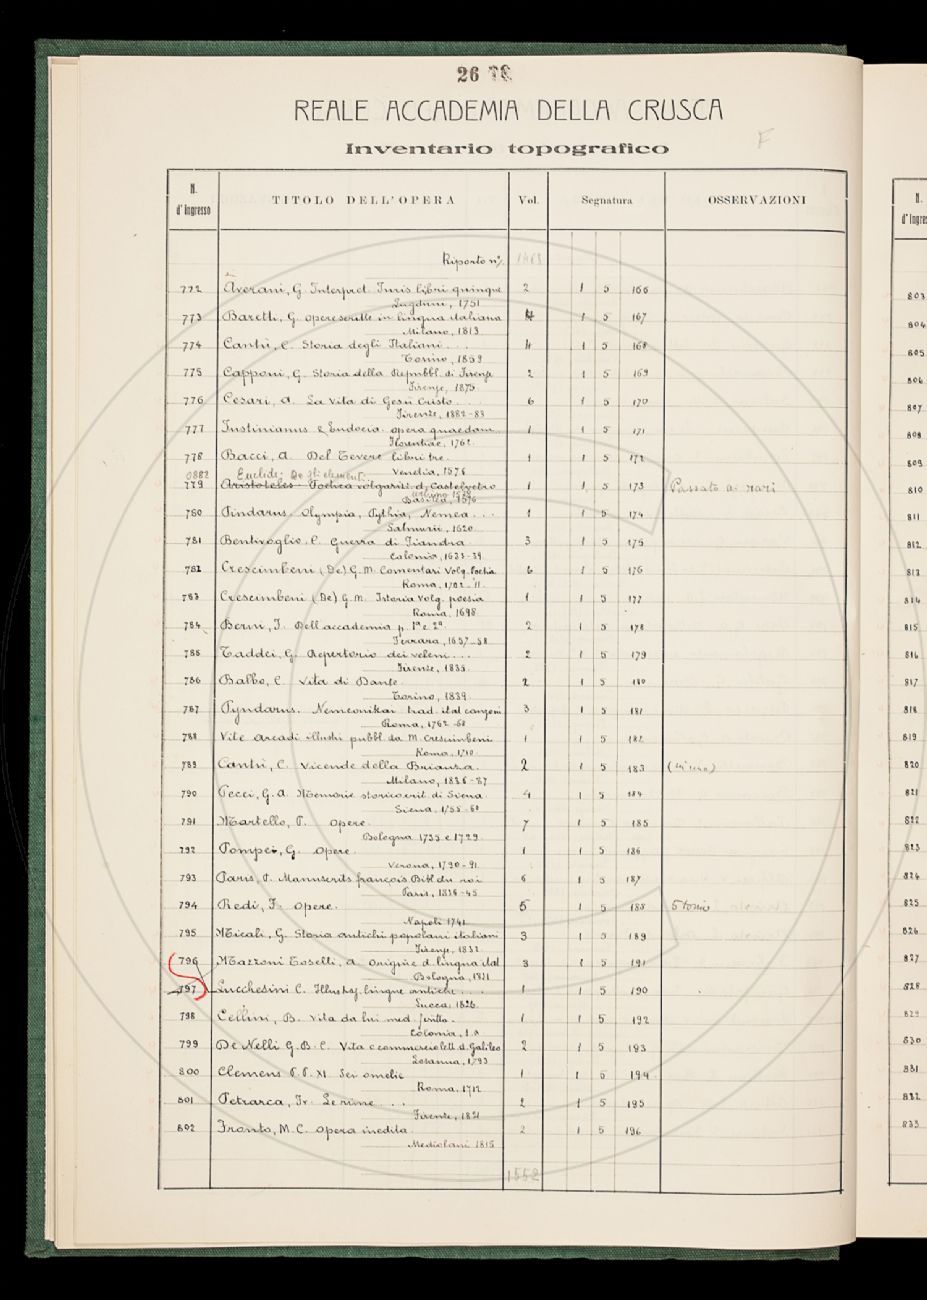 26
REALE ACCADEMIA DELLA CRUSCA
F
Inventario topografico
N. d'Ingresso TITOLO DELL'OPERA Vol. Segnatura OSSERVAZIONI
Riporto n°
772 Averani, G. Interpret. Juris libri quinque 2 1 5 166
Lugduni, 1751
773 Baretti, G. opere scritte in lingua italiana 4 1 5 167
Milano, 1813
774 Cantù, C. Storia degli Italiani . . . 4 1 5 168
Torino, 1859
775 Capponi, G. Storia della Repubbl. di Firenze 2 1 5 169
Firenze, 1875
776 Cesari, A. La vita di Gesù Cristo . . . 6 1 5 170
Firenze, 1882-83
777 Justinianus & Eudocia. opera quaedam 1 1 5 171
Florentiae, 1762
778 Bacci, A. Del Tevere libri tre. 1 1 5 172
Venetia, 1576
0882 Euclide; De gli elementi
779 Aristoteles. Poetica volgariz. d. Castelvetro 1 1 5 173 Passato ai rari
Urbino 1575
Basilea, 1576
780 Pindarus. Olympia, Pythia, Nemea . . . 1 1 5 174
Salmurii, 1620
781 Bentivoglio, C. Guerra di Fiandra 3 1 5 175
Colonia, 1633-39
782 Crescimbeni (De) G. M. Comentari Volg. Poesia 6 1 5 176
Roma, 1702-'11
783 Crescimbeni (De) G. M. Istoria Volg. poesia 1 1 5 177
Roma, 1698
784 Berni, F. Dell'accademia p. 1ª e 2ª 2 1 5 178
Ferrara, 1657-58
785 Taddei, G. Repertorio dei veleni . . . 2 1 5 179
Firenze, 1835
786 Balbo, C. Vita di Dante. 2 1 5 180
Torino, 1839
787 Pyndarus. Nemeonikai trad. ital canzoni 3 1 5 181
Roma, 1762-68
788 Vite arcadi illustri pubbl. da M. Crescimbeni 1 1 5 182
Roma, 1710
789 Cantù, C. Vicende della Brianza. 2 1 5 183
Milano, 1836-37
790 Pecci, G. A. Memorie storico crit. di Siena 4 1 5 184
Siena, 1755-60
791 Martello, P. Opere. 7 1 5 185
Bologna 1735 e 1729
792 Pompei, G. Opere. 1 1 5 186
Verona, 1790-91
793 Paris, P. Manuscrits françois Bibl. du roi 6 1 5 187
Paris, 1836-45
794 Redi, F. Opere. 5 1 5 188
Napoli 1741
795 Micali, G. Storia antichi popolani italiani 3 1 5 189
Firenze, 1832
796 Mazzoni Toselli, O. Origine d. lingua ital 3 1 5 191
Bologna, 1831
797 Lucchesini C. Illustraz. lingue antiche . . . 1 1 5 190
Lucca, 1826
798 Cellini, B. Vita da lui med. scritta. 1 1 5 192
Colonia, s.a
799 De Nelli G. B. C. Vita e commercio lett. d. Galileo 2 1 5 193
Losanna, 1793
800 Clemens P. P. XI. Sei omelie 1 1 5 194
Roma, 1712
801 Petrarca, Fr. Le rime . . . 2 1 5 195
Firenze, 1821
802 Fronto, M. C. Opera inedita. 2 1 5 196
Mediolani 1815
1552
N. d'Ingre
803
804
805
806
807
808
809
810
811
812
813
814
815
816
817
818
819
820
821
822
823
824
825
826
827
828
829
830
831
832
833